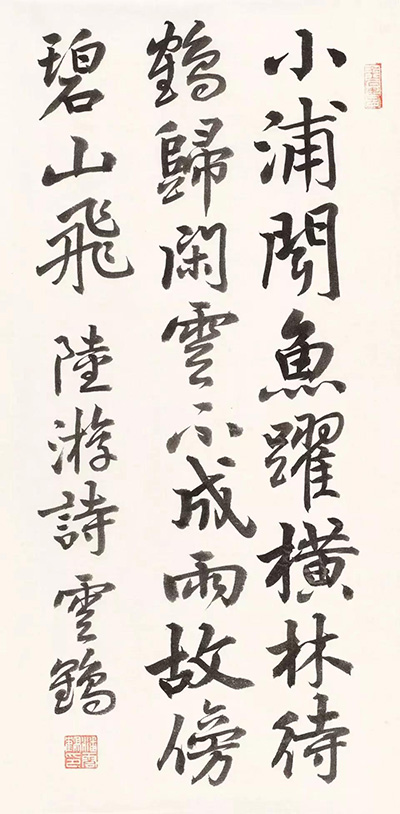 小浦聞魚躍橫林待
鶴歸閑雲不成雨故傍
碧山飛
陸游詩 雲鶴